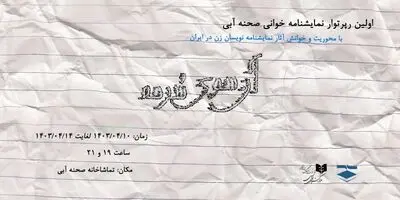 اولین رپرتوار نمایشنامه خوانی صحنه آبی
با محوریت و خوانش آثار نمایشنامه نویسان زن در ایران
زمان: ۱۴۰۳/۰۴/۱۰ لغایت ۱۴۰۳/۰۴/۱۴
ساعت ۱۹ و ۲۱
مکان: تماشاخانه صحنه آبی